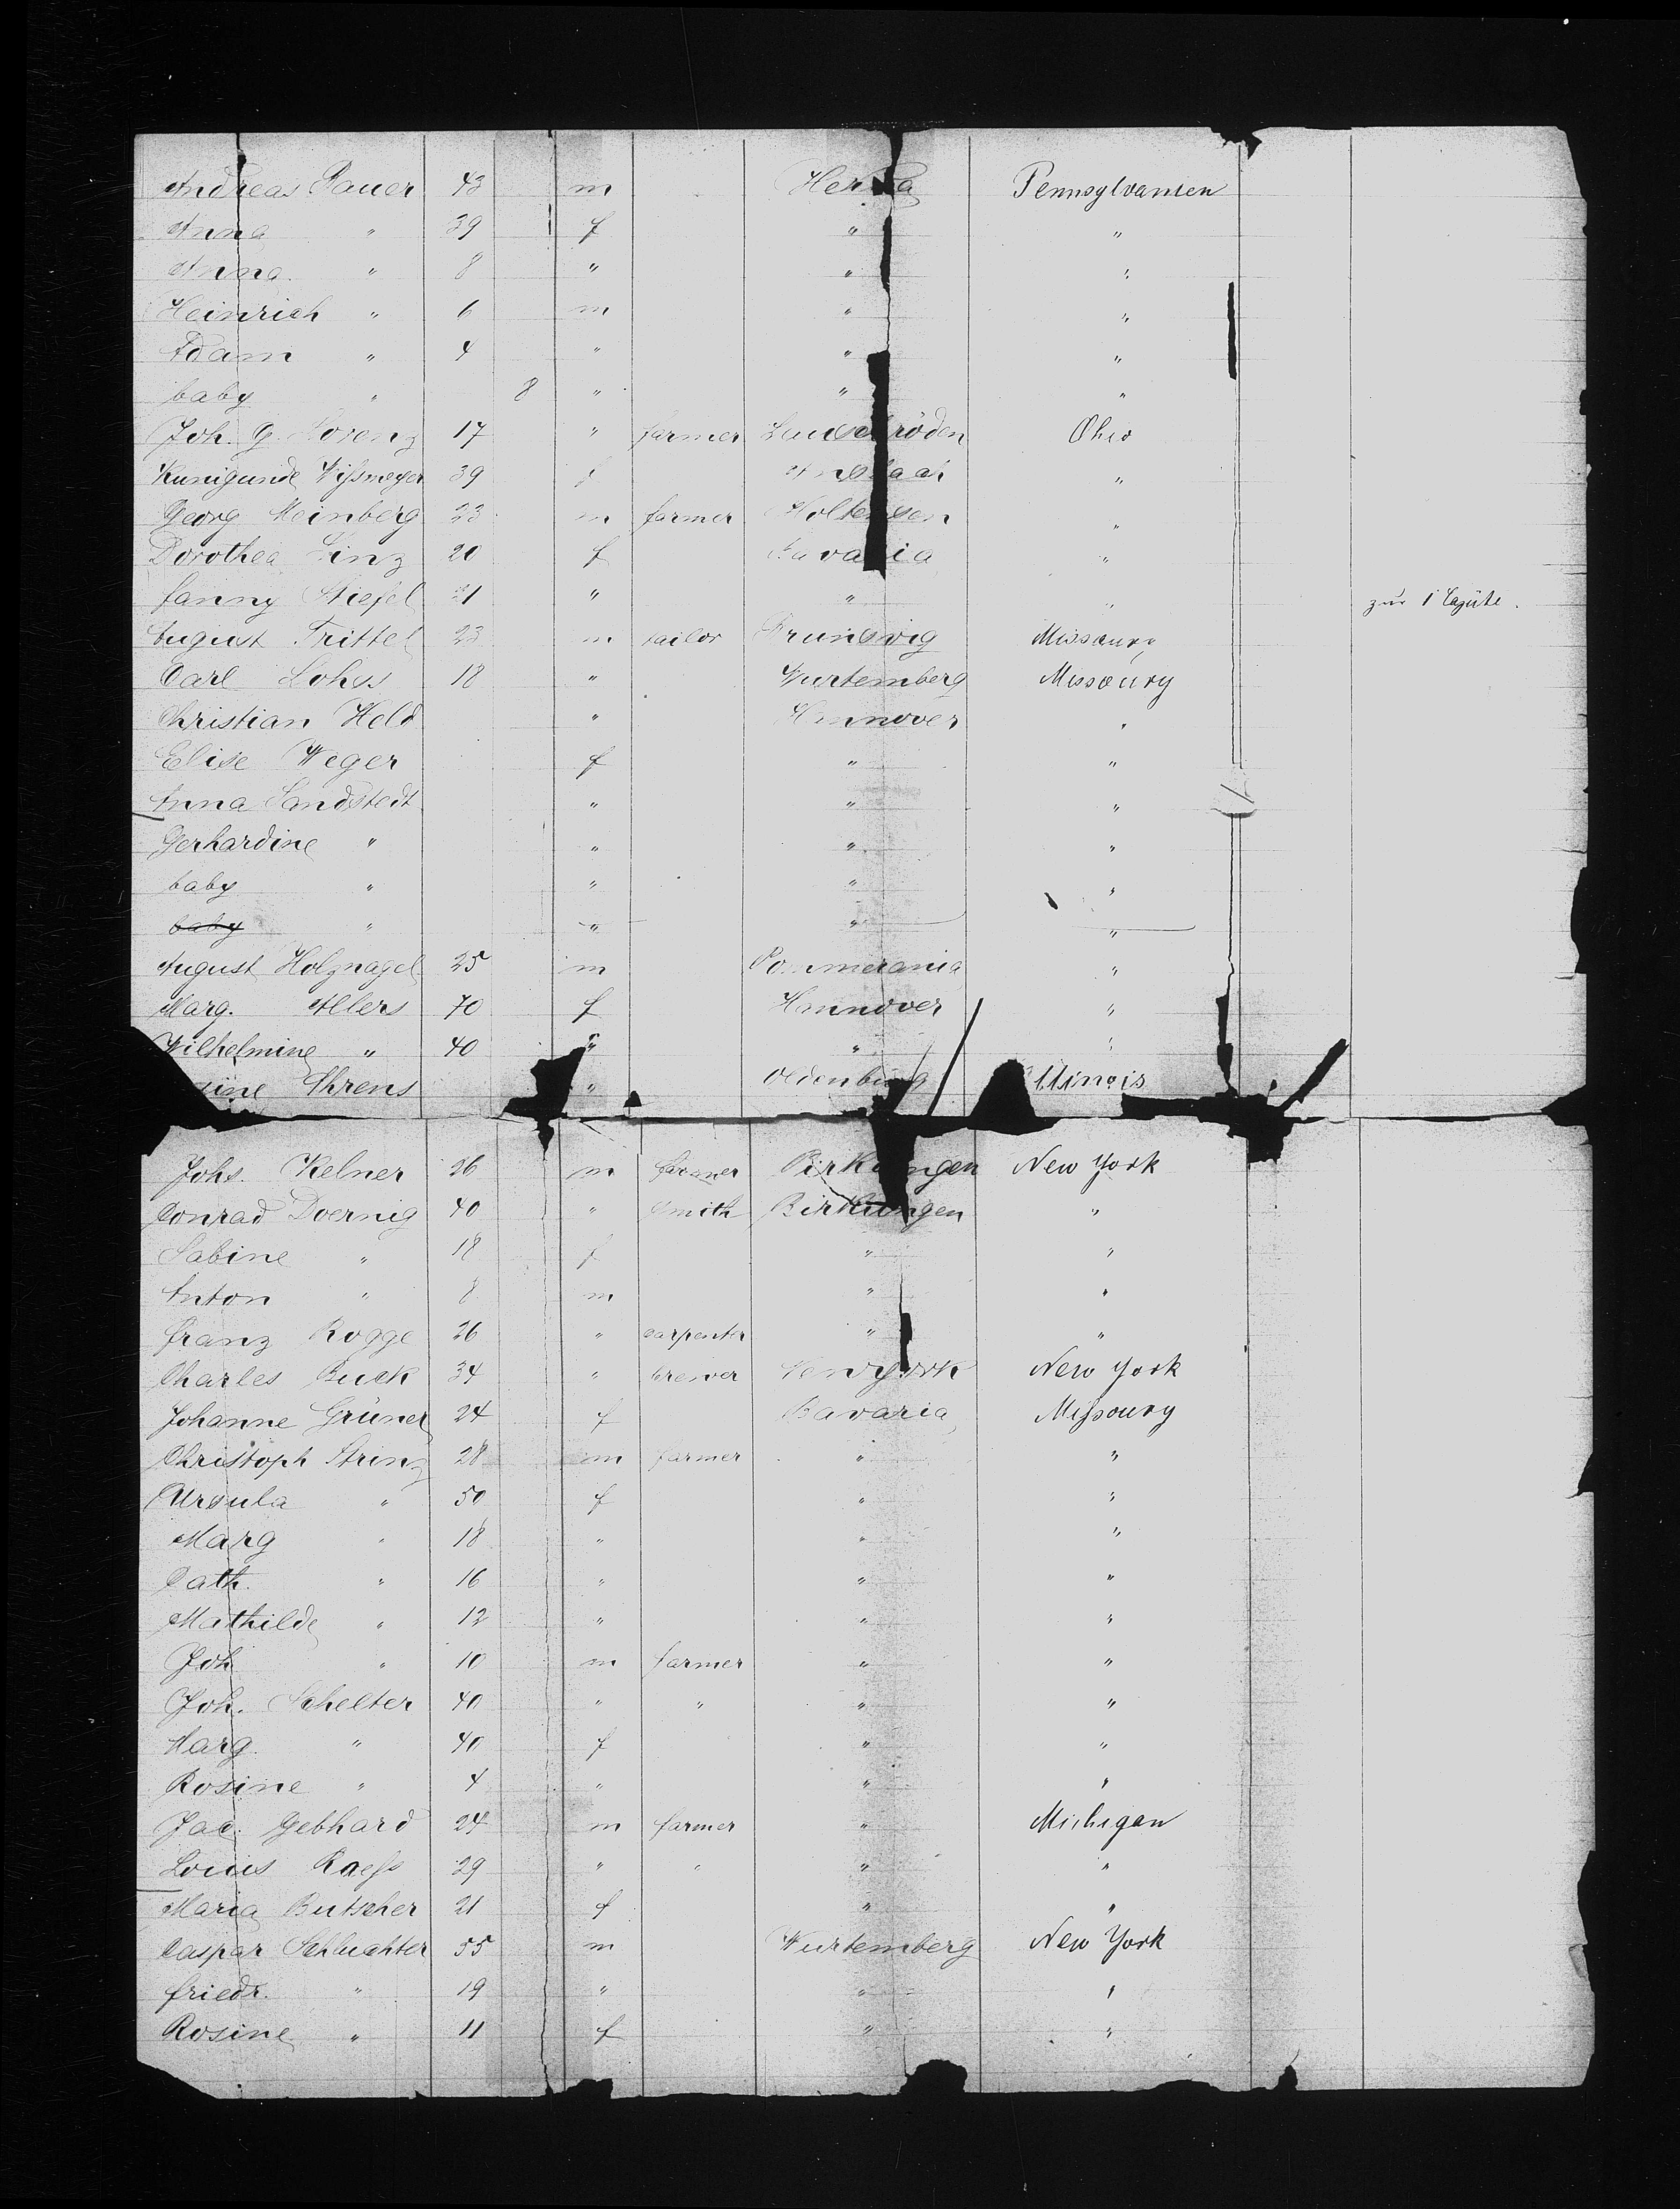 Andreas Pauer 43 m Pennsylvanien
Anna " 39 f " "
Anna " 8 " " "
Heinrich " 6 m " "
Adam " 4 " " "
baby " 8 " " "
Joh. G. Lorenz 17 " farmer Ohio
Kunigunde Wißmeyer 39 f "
Georg Meinberg 23 m farmer Holtensen "
Dorothea Linz 20 f Bavaria "
Fanny Stiefel 21 " " " zur 1 Cajüte.
August Trittel 23 m tailor Brunswig Missoury
Carl Lohss 18 " Wurtemberg Missoury
Christian Held " Hannover "
Elise Weger f " "
Anna Sandstedt " " "
Gerhardine " " " "
baby " " " "
baby " " " "
August Holznagel 25 m Pommerania "
Marg. Allers 70 f Hannover "
Wilhelmine " 40 " " "
Ahrens " Oldenburg Illinois
Johs. Kelner 26 m farmer Birkungen New York
Conrad Doernig 40 " Smith Birkungen "
Sabine " 18 f " "
Anton " 8 m " "
Franz Rogge 26 " carpenter " "
Charles Buck 34 " brewer Newyork New York
Johanne Grüner 24 f Bavaria Missoury
Christoph Strinz 28 m farmer " "
Ursula " 50 f " "
Marg " 18 " " "
Cath. " 16 " " "
Mathilde " 12 " " "
Joh " 10 m farmer " "
Joh. Schelter 40 " " " "
Marg. " 40 f " "
Rosine " 4 " " "
Jac. Gebhard 24 m farmer " Michigan
Louis Raeß 29 " " " "
Maria Butscher 21 f " "
Caspar Schluchter 55 m Wurtemberg New York
Friedr. " 19 " " "
Rosine " 11 f " "